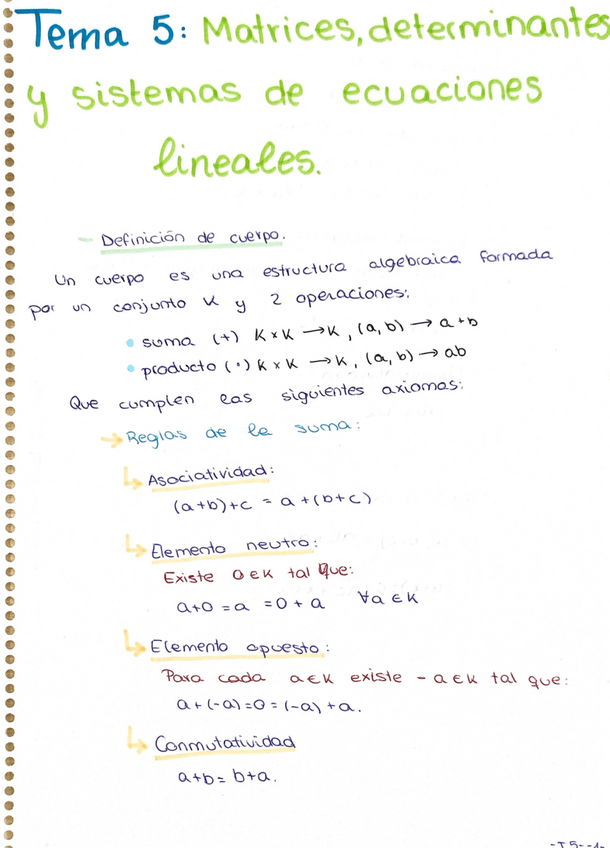 Tema 5: Matrices, determinantes
y sistemas de ecuaciones
lineales.
- Definición de cuerpo.
Un cuerpo es una estructura algebraica formada
por un conjunto K y 2 operaciones:
• suma (+) K x K → K, (a, b) → a + b
• producto (·) K x K → K, (a, b) → ab
Que cumplen las siguientes axiomas:
→ Reglas de la suma:
↳ Asociatividad:
(a+b)+c = a+(b+c)
↳ Elemento neutro:
Existe 0 ∈ K tal que:
a+0 = a = 0 + a ∀a ∈ K
↳ Elemento opuesto:
Para cada a ∈ K existe -a ∈ K tal que:
a + (-a) = 0 = (-a) + a.
↳ Conmutatividad
a+b = b+a.
-T5--1-